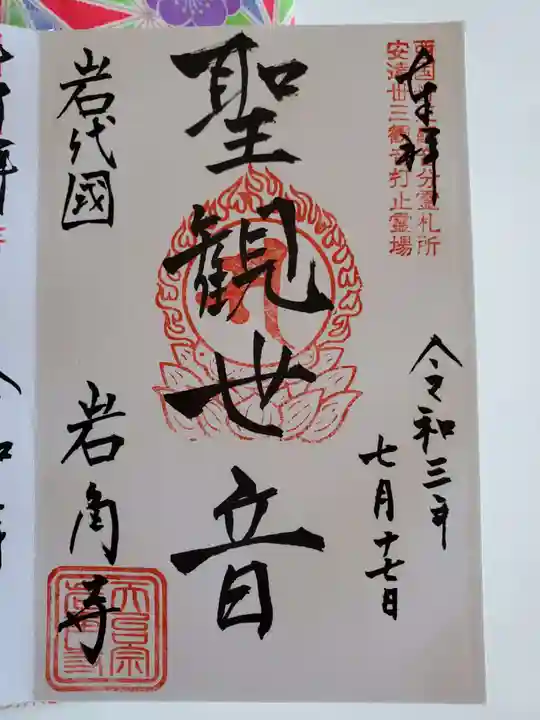 奉拝
西国三十三番分霊札所
安達丗三観音打止霊場
令和三年
七月十七日
聖観世音
岩代國
岩角寺
天台宗
岩角寺